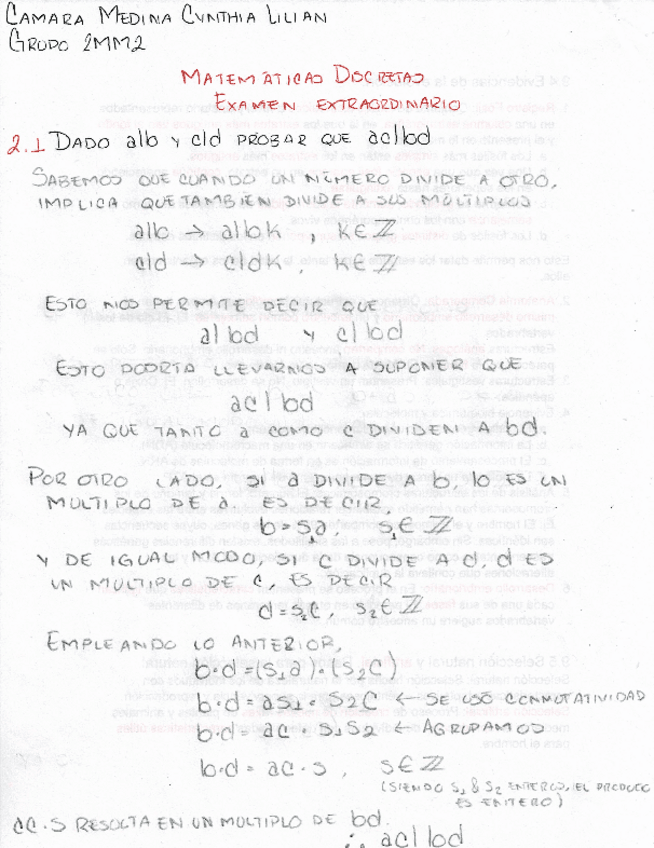 CAMARA MEDINA CYNTHIA LILIAN
GRUPO 2MM2
MATEMÁTICAS DISCRETAS
EXAMEN EXTRAORDINARIO
2.1 DADO a|b Y c|d PROBAR QUE ac|bd
SABEMOS QUE CUANDO UN NÚMERO DIVIDE A OTRO,
IMPLICA QUE TAMBIÉN DIVIDE A SUS MÚLTIPLOS
a|b → a|bk , k∈ℤ
c|d → c|dk , k∈ℤ
ESTO NOS PERMITE DECIR QUE
a|bd Y c|bd
ESTO PODRÍA LLEVARNOS A SUPONER QUE
ac|bd
YA QUE TANTO a COMO c DIVIDEN A bd.
POR OTRO LADO, SI a DIVIDE A b, b ES UN
MULTIPLO DE a, ES DECIR,
b = s₁a s₁∈ℤ
Y DE IGUAL MODO, SI c DIVIDE A d, d ES
UN MULTIPLO DE c, ES DECIR
d = s₂c, s₂∈ℤ
EMPLEANDO LO ANTERIOR,
b·d = (s₁a)·(s₂c)
b·d = as₁·s₂c ← SE USÓ CONMUTATIVIDAD
b·d = ac·s₁s₂ ← AGRUPAMOS
b·d = ac·s , s∈ℤ
(SIENDO s₁ & s₂ ENTEROS, EL PRODUCTO
ES ENTERO)
ac·s RESULTA EN UN MULTIPLO DE bd.
∴ ac|bd